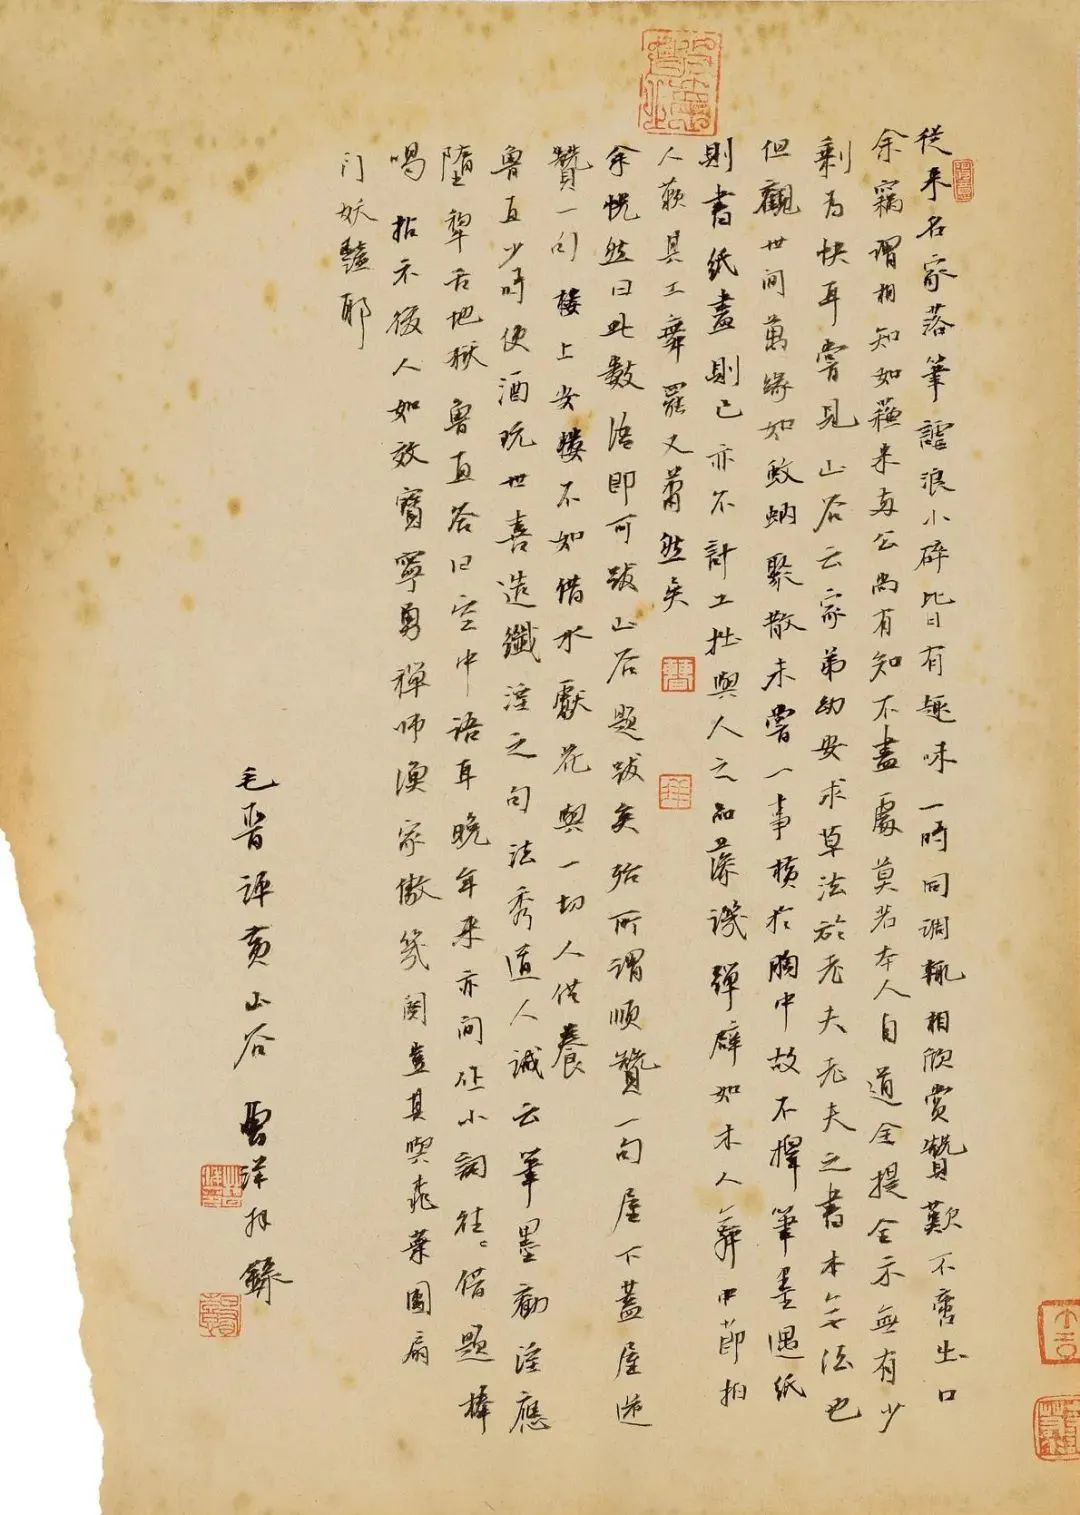 從来名家落筆謔浪小碎皆有趣味一時同調輒相欣賞贊歎不啻出口
余竊謂相知如蘇米兩公尚有知不盡處莫若本人自道全提全示無有少
剩為快耳嘗見山谷云家弟幼安求草法於老夫老夫之書本無法也
但觀世間萬緣如蚊蚋聚散未嘗一事橫於胸中故不擇筆墨遇紙
則書紙盡則已亦不計工拙與人之品藻譏彈辟如木人舞中節拍
人歎其工舞罷又蕭然矣
余恍然曰此數語即可跋山谷題跋矣殆所謂順贊一句屋下蓋屋逆
贊一句樓上安樓不如借水獻花與一切人供養
魯直少時使酒玩世喜造纖淫之句法秀道人誡云筆墨勸淫應
墮犁舌地獄魯直答曰空中語耳晚年来亦間作小詞往々借題棒
喝拈示後人如效寶寧勇禪師漁家傲幾闋豈其與桃葉團扇
鬥妖豔耶
毛晉評黃山谷 拜錄